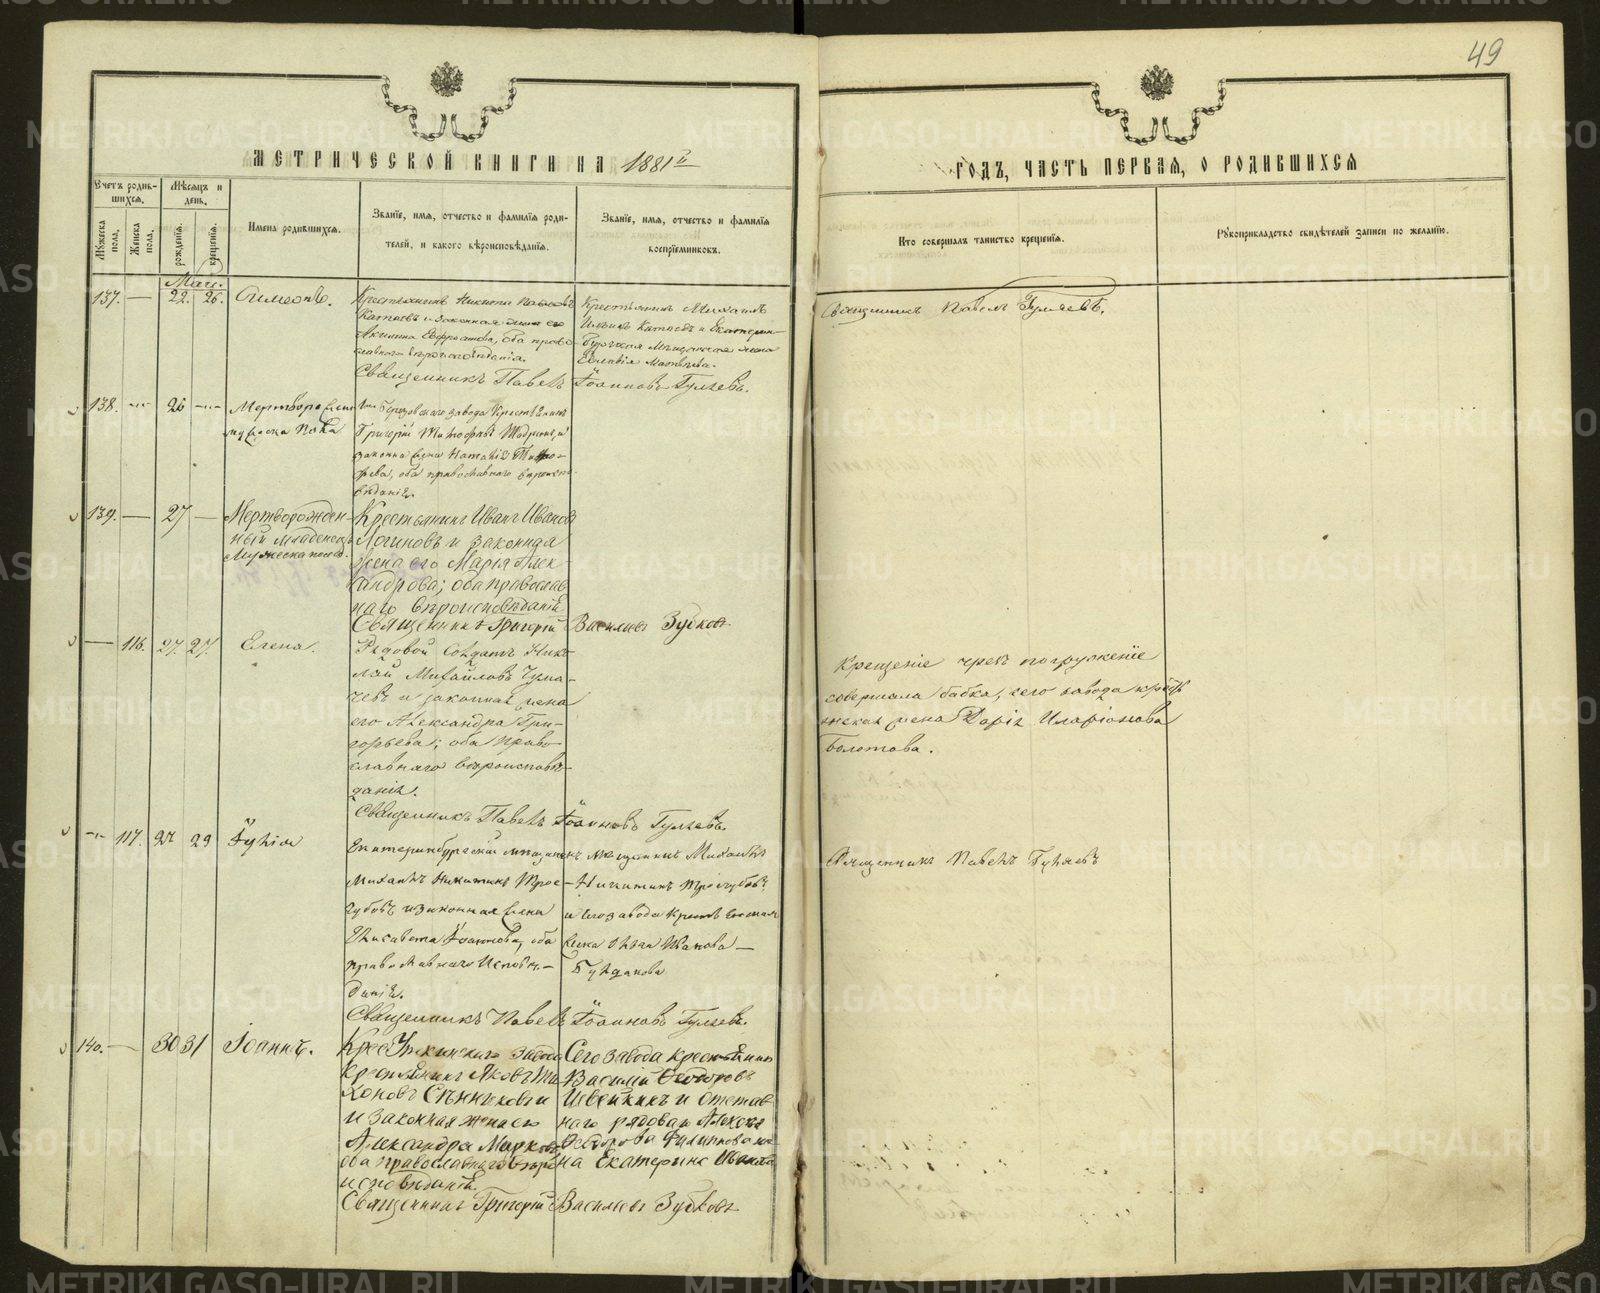 49
МЕТРИЧЕСКОЙ КНИГИ НА 1881й
ГОДЪ, ЧАСТЬ ПЕРВАЯ, О РОДИВШИХСЯ
Счетъ родив-
шихся.
Мѣсяцъ и
день.
Мужеска
пола.
Женска
пола.
рожденія.
крещенія.
Имена родившихся.
Званіе, имя, отчество и фамилія роди-
телей, и какого вѣроисповѣданія.
Званіе, имя, отчество и фамилія
воспріемниковъ.
Кто совершалъ таинство крещенія.
Рукоприкладство свидѣтелей записи по желанію.
137. — 22. 26. Симеонъ.
Крестьянинъ Никита Павловъ
Катаевъ и законная жена его
Акилина Евфросинова, оба право-
славнаго вѣроисповѣданія.
Крестьянинъ Михаилъ
Катаевъ и Екатерин-
бургская Мѣщанская жена
Матвѣева.
Священникъ Павелъ Гуляевъ.
Священникъ Павелъ Іоанновъ Гуляевъ.
138. 26
Мужеска пола
Березовскаго завода Крестьянинъ
Григорій
законная жена Наталія
оба православнаго вѣроиспо-
вѣданія.
139. — 27 —
Мертворожден-
ный младенецъ
Мужеска пола.
Крестьянинъ Иванъ Ивановъ
Логиновъ и законная
жена его Марія Алек-
сандрова; оба православ-
наго вѣроисповѣданія
Священникъ Григорій Васильевъ Зубковъ
— 116. 27. 27. Елена.
Рядовой Солдатъ Нико-
лай Михайловъ Чума-
чевъ и законная жена
его Александра Гри-
горьева; оба право-
славнаго вѣроисповѣ-
данія.
Крещеніе чрезъ погруженіе
совершала бабка, сего завода крестья
нская жена Дарія Иларіонова
Болотова.
Священникъ Павелъ Іоанновъ Гуляевъ.
117. 27 29
Екатеринбургскій мѣщанинъ
Михаилъ Никитинъ Трое-
губовъ и законная жена
Елисавета Іоаннова, оба
православнаго Исповѣ-
данія.
Мѣщанинъ Михаилъ
Никитинъ Троегубовъ
и сего завода
жена Анна Иванова —
Булдакова
Священникъ Павелъ Гуляевъ
Священникъ Павелъ Іоанновъ Гуляевъ.
140. — 30 31 Іоаннъ.
Уткинскаго завода
Крестьянинъ Яковъ Ти
хоновъ Сѣнниковъ и
и законная жена его
Александра Маркова
оба православнаго вѣро
исповѣданія.
Сего завода крестьянинъ
Василій Ѳедоровъ
Швейкинъ и отстав-
наго рядоваго Алексѣя
Ѳедорова Филиппова же
на Екатерина Иванова
Священникъ Григорій Васильевъ Зубковъ
METRIKI.GASO-URAL.RU